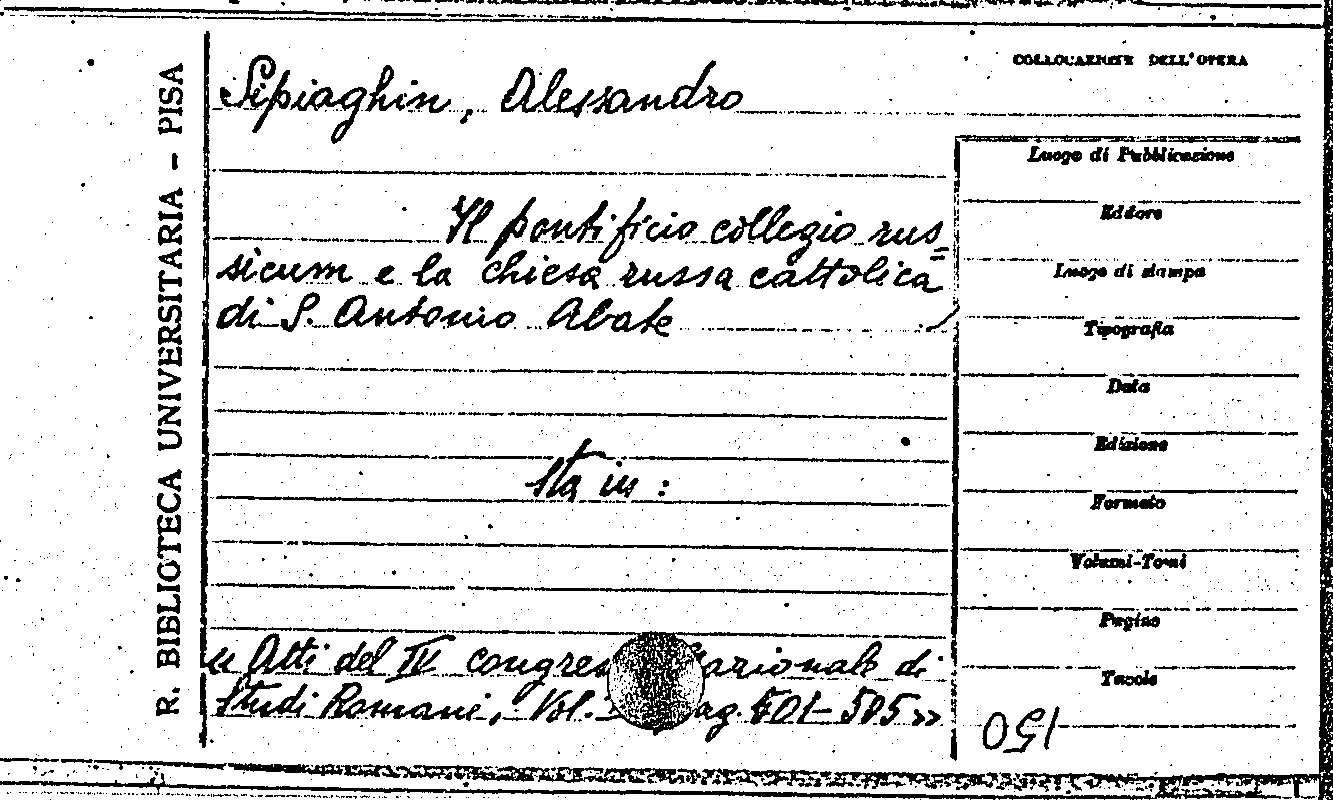 R. BIBLIOTECA UNIVERSITARIA – PISA
COLLOCAZIONE DELL'OPERA
Sipiaghin, Alessandro
Il pontificio collegio rus=
sicum e la chiesa russa cattolica
di S. Antonio Abate
Sta in:
« Atti del IV congres nazionale di
Studi Romani, Vol. pag. 501-505 »
Luogo di Pubblicazione
Editore
Luogo di stampa
Tipografia
Data
Edizione
Formato
Volumi-Tomi
Pagine
Tavole
150